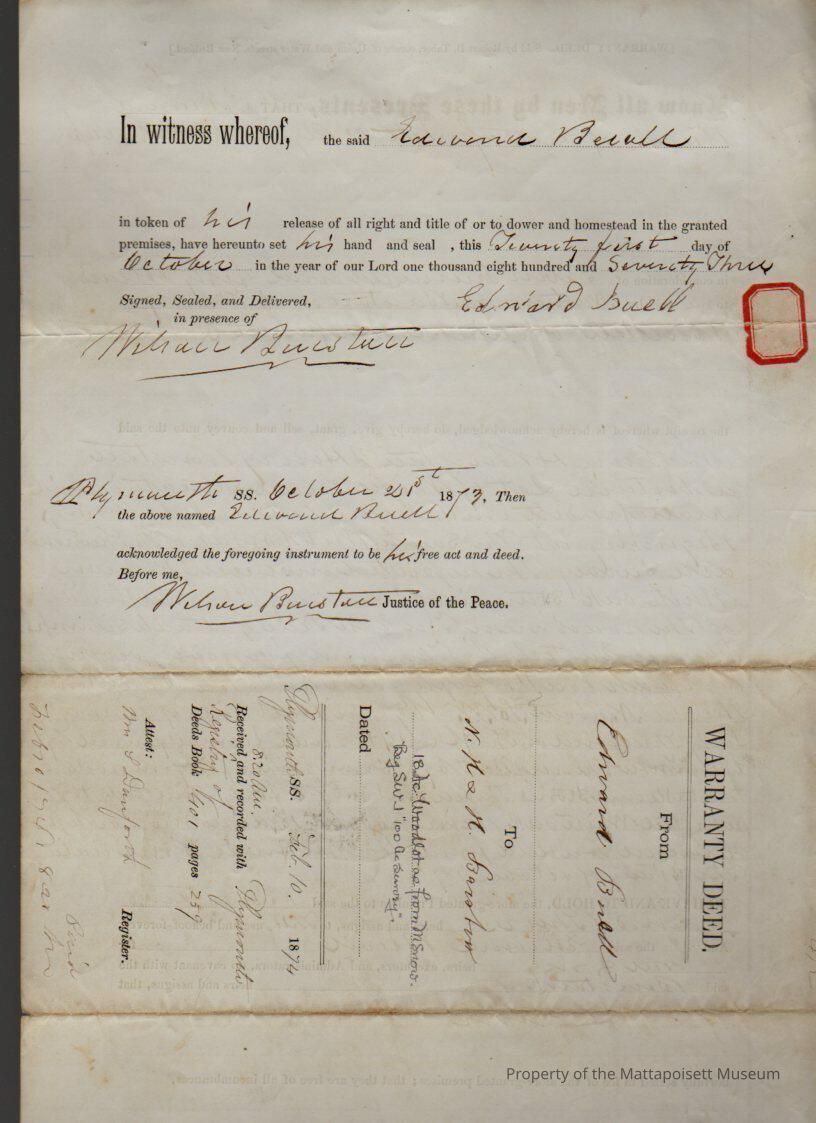 In witness whereof, the said Edward Buell
in token of his release of all right and title of or to dower and homestead in the granted
premises, have hereunto set his hand and seal , this Twenty first day of
October in the year of our Lord one thousand eight hundred and Seventy Three
Signed, Sealed, and Delivered,
in presence of
Edward Buell
Wilson Barstow
Plymouth SS. October 21st 1873, Then
the above named Edward Buell
acknowledged the foregoing instrument to be his free act and deed.
Before me,
Wilson Barstow Justice of the Peace.
WARRANTY DEED.
From
Edward Buell
To
N. H & H. Barstow
18 Ac. Woodlot as from M Snow.
Reg. SW 1 "100 Ac Survey".
Dated
Plymouth SS. Feb. 10. 1874
8.20 AM.
Received and recorded with Plymouth
Registry of
Deeds Book 401 pages 259
Attest:
Wm S Danforth Register.
Property of the Mattapoisett Museum